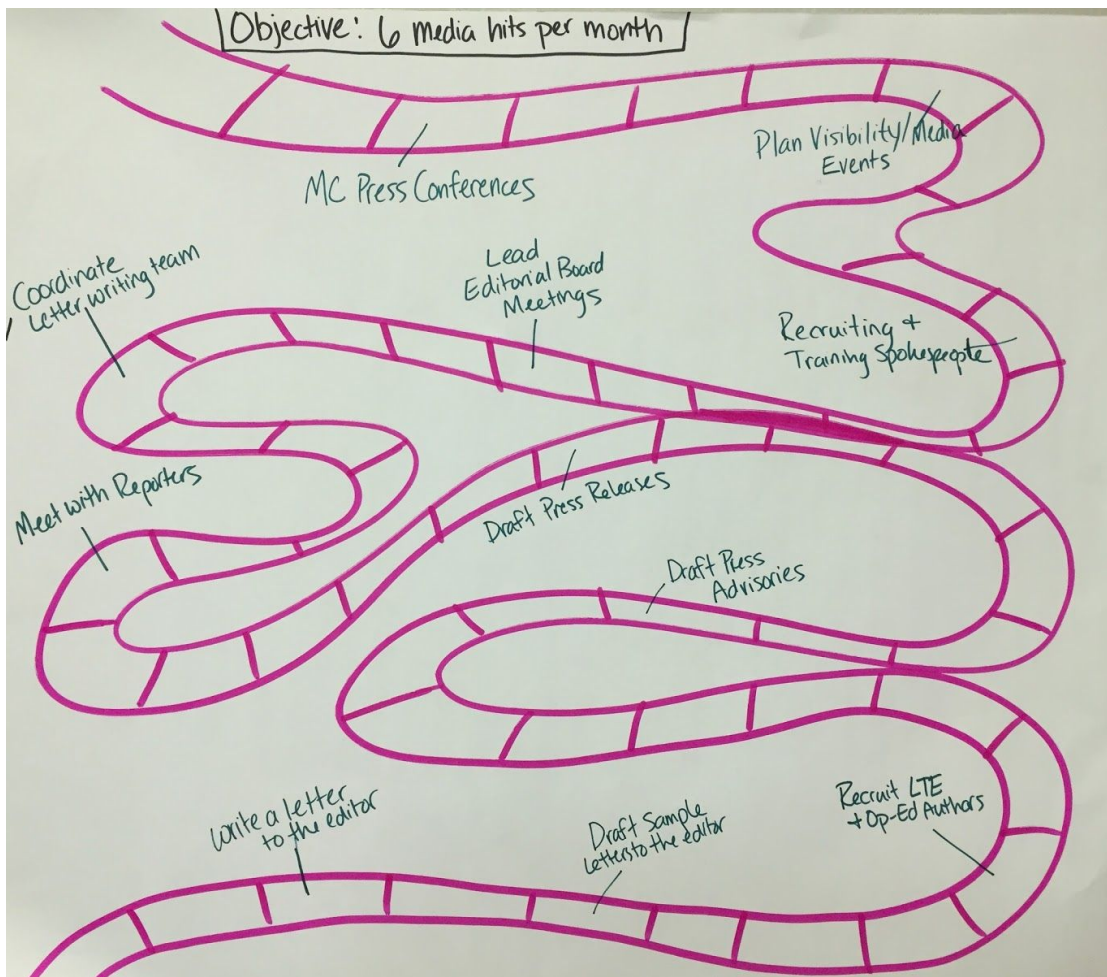 Objective: 6 media hits per month
Plan Visibility/Media
Events
MC Press Conferences
Coordinate
Letter writing team
Lead
Editorial Board
Meetings
Recruiting +
Training Spokespeople
Meet with Reporters
Draft Press Releases
Draft Press
Advisories
Write a letter
to the editor
Draft Sample
Letters to the editor
Recruit LTE
+ Op-Ed Authors